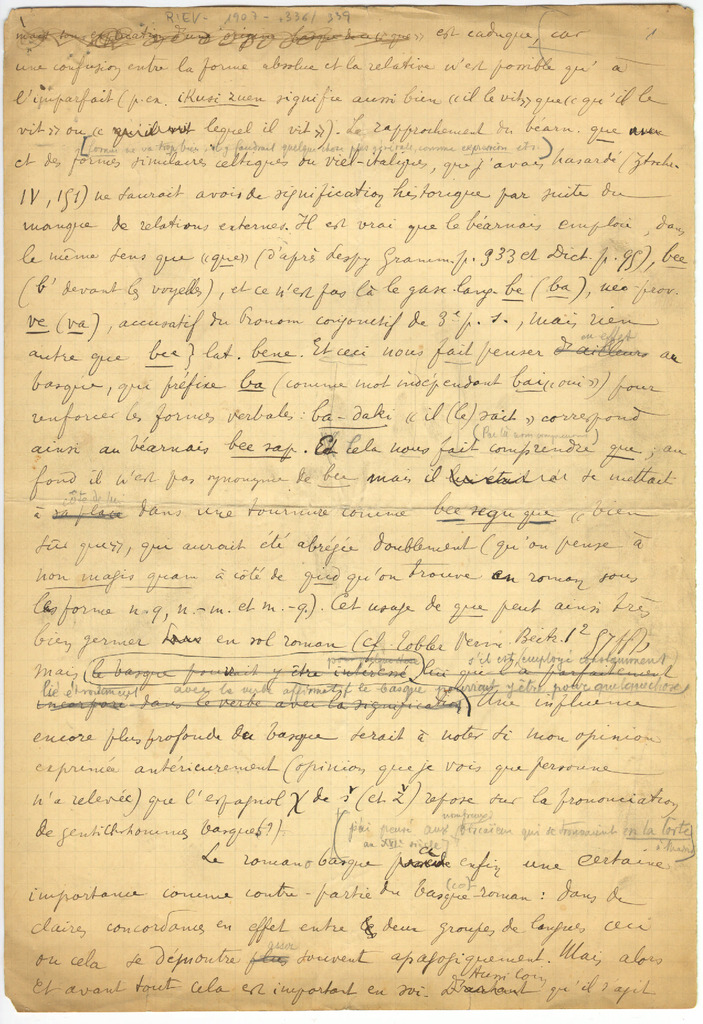 RIEV - 1907 - 336/339
mais son explication d'une origine basque de «que» est caduque, car
une confusion entre la forme absolue et la relative n'est possible qu'à
l'imparfait (p. ex. ikusi zuen signifie aussi bien «il le vit» que «qu'il le
vit» ou « lequel il vit»). Le rapprochement du béarn. que avec
et des formes similaires celtiques ou viel-italiques, que j'avais hasardé (Ztschr.
IV, 151) ne saurait avoir de signification historique par suite du
manque de relations externes. Il est vrai que le béarnais emploie, dans
le même sens que «que» (d'après Lespy Gramm. p. 933 et Dict. p. 95), bee
(b' devant les voyelles), et ce n'est pas là le gasc. lang. be (ba), neo-prov.
ve (va), accusatif du Pronom conjonctif de 3e p. s., mais rien
autre que bee } lat. bene. Et ceci nous fait penser d'ailleurs en effet au
basque, que préfixe ba (comme mot indépendant bai «oui») pour
renforcer les formes verbales: ba-daki «il (le) sait» correspond
ainsi au béarnais bee sap. Et cela nous fait comprendre que; au
(Par là nous comprenons)
fond il n'est pas synonyme de bee mais il se mettait
à sa place côté de lui dans une tournure comme bee segu que «bien
sûr que», qui aurait été abrégée doublement (qu'on pense à
non magis quam à côté de qu'on trouve en roman sous
les forme n.-q, n.-m. et m.-q.). Cet usage de que peut ainsi très
bien germer en sol roman (cf. Tobler Verm. Beitr. 1² 57 ff),
mais (le basque pourrait y être intéressé s'il est employé uniquement)
lié étroitement avec le verbe affirmatif le basque pourrait y être pour quelque chose)
incorporé dans le verbe avec la signification) Une influence
encore plus profonde du basque serait à noter si mon opinion
exprimée antérieurement (opinion que je vois que personne
n'a relevée) que l'espagnol χ de š (et ž) repose sur la prononciation
de gentilshommes basques (?)
(j'ai pensé aux nombreux biscaïens qui se trouvaient en la Corte
au XVIe siècle)
Le romano basque possède enfin une certaine
importance comme contre-partie du basque-roman: dans de
claires concordances en effet entre les deux groupes de langues ceci
ou cela se démontre plus souvent apagogiquement. Mais alors
Et avant tout cela est important en soi. Aussi loin qu'il s'agit